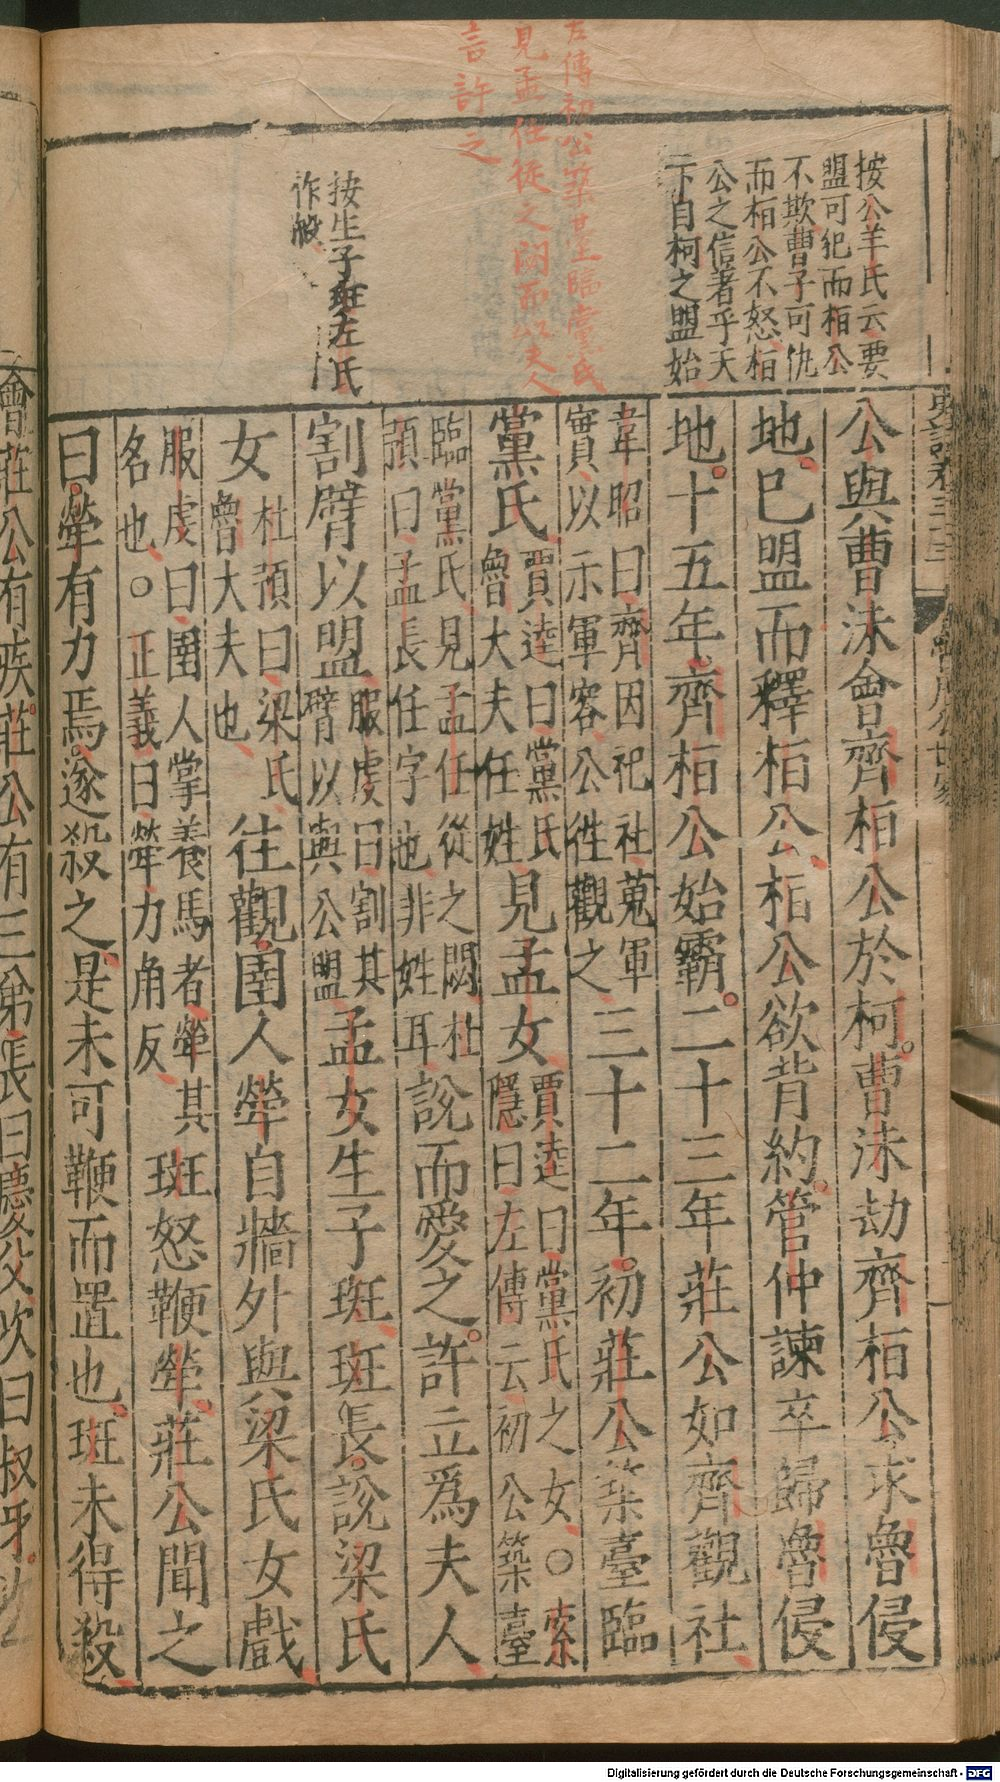 左傳初公築臺臨黨氏
見孟任從之閟而以夫人
言許之
按公羊氏云要
盟可犯而桓公
不欺曹子可仇
而桓公不怒桓
公之信著乎天
下自柯之盟始
按生子斑左氏
作般
公與曹沬會齊桓公於柯曹沬劫齊桓公求魯侵
地已盟而釋桓公桓公欲背約管仲諫卒歸魯侵
地十五年齊桓公始霸二十三年莊公如齊觀社
韋昭曰齊因祀社蒐軍
實以示軍容公往觀之
三十二年初莊公築臺臨
黨氏
賈逵曰黨氏
魯大夫任姓
見孟女
賈逵曰黨氏之女○索
隱曰左傳云初公築臺
臨黨氏見孟任從之閟杜
預曰孟任字也非姓耳
說而愛之許立爲夫人
割臂以盟
服虔曰割其
臂以與公盟
孟女生子斑斑長說梁氏
女
杜預曰梁氏
魯大夫也
往觀圉人犖自牆外與梁氏女戲
服虔曰圉人掌養馬者犖其
名也○正義曰犖力角反
斑怒鞭犖莊公聞之
曰犖有力焉遂殺之是未可鞭而置也斑未得殺
會莊公有疾莊公有三弟長曰慶父次曰叔牙
Digitalisierung gefördert durch die Deutsche Forschungsgemeinschaft - DFG